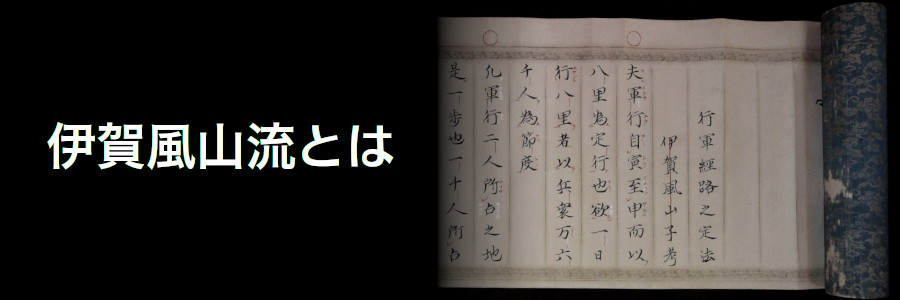 伊賀風山流とは
行軍經路之定法
伊賀風山子考
夫軍行自寅至申而以
八里為定行也欲一日
行八里者以兵衆万六
千人為節度
凡軍行二人所占之地
是一歩也一十人所占